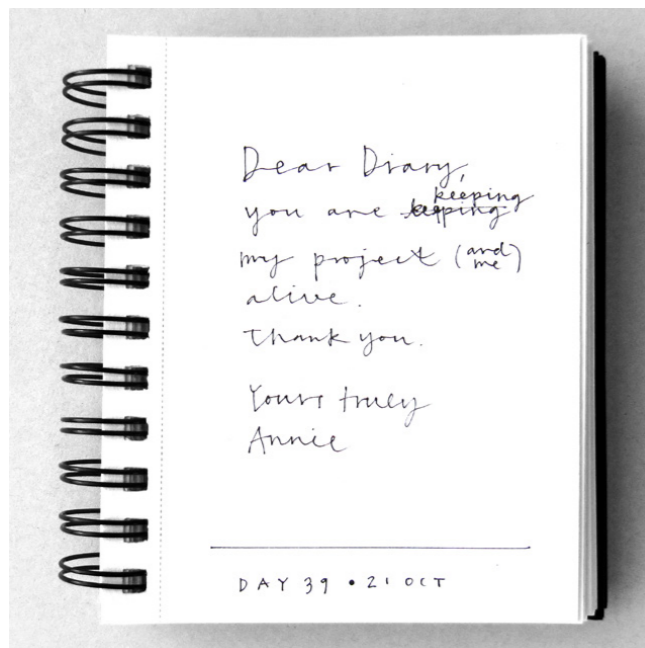 Dear Diary,
you are keeping
my project (and me)
alive.
Thank you.
Yours truly
Annie
DAY 39 • 21 OCT